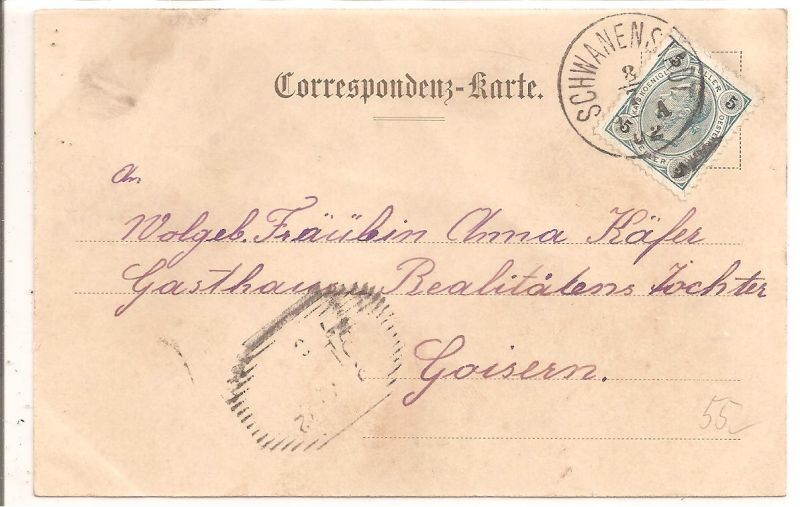 Correspondenz-Karte.
SCHWANENST
5 5 5 5
An
Wolgeb. Fräulein Anna Käfer
Gasthaus u. Realitätens Tochter
Goisern.
55